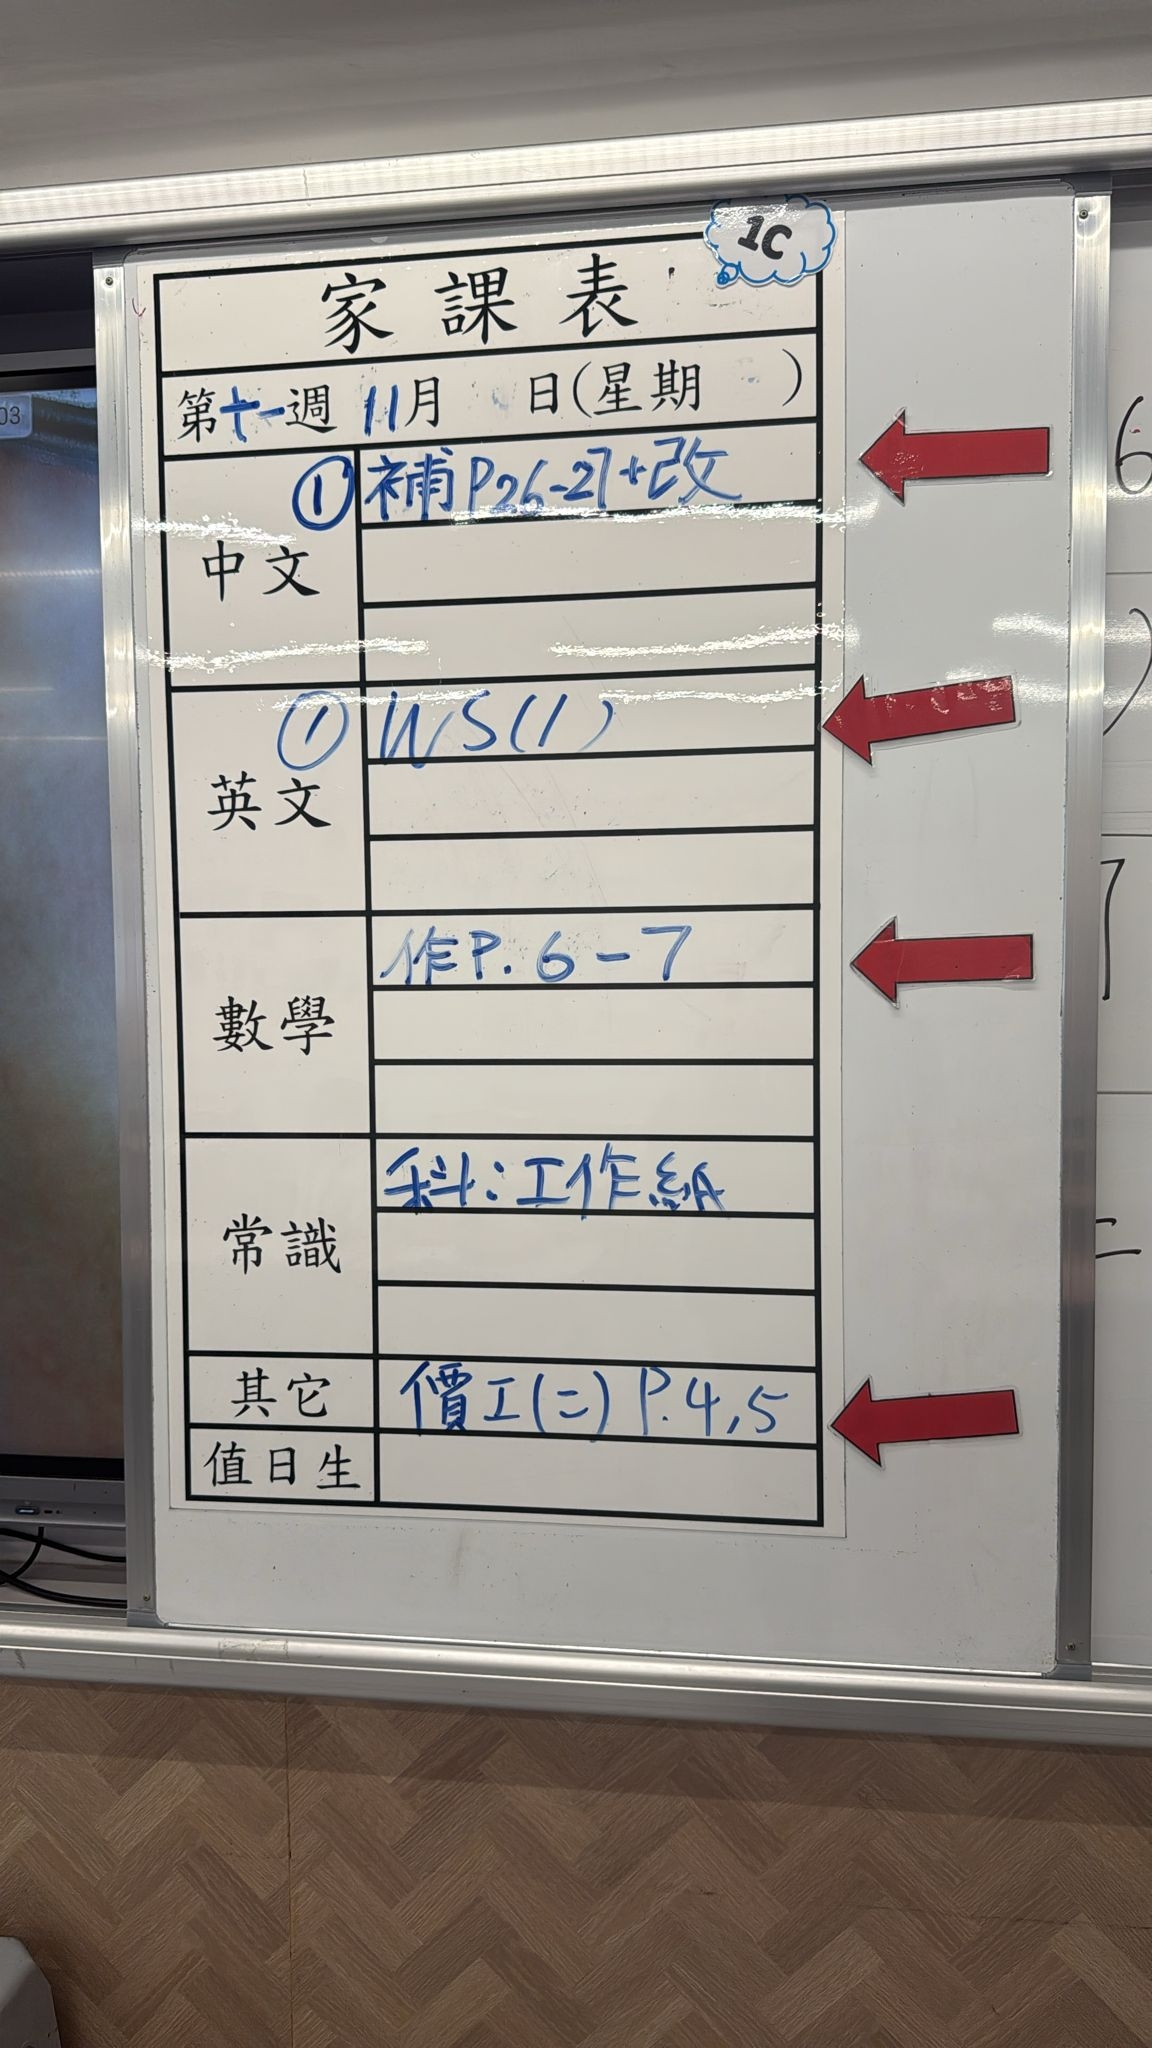 1C
家課表
第十一週 11月 日(星期 )
中文
① 補P26-27+改
英文
① WS(1)
數學
作P.6-7
常識
科:工作紙
其它
價工(二)P.4,5
值日生
03
6
)
7
=